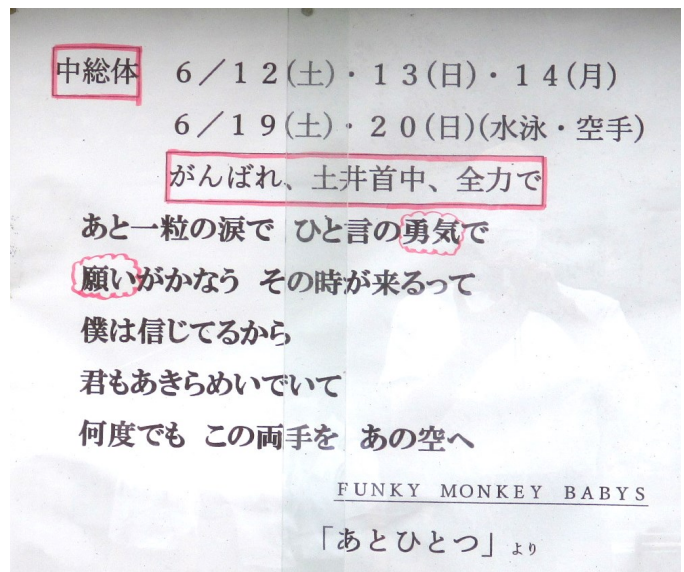 中総体 6/12(土)・13(日)・14(月)
6/19(土)・20(日)(水泳・空手)
がんばれ、土井首中、全力で
あと一粒の涙で ひと言の勇気で
願いがかなう その時が来るって
僕は信じてるから
君もあきらめいでいて
何度でも この両手を あの空へ
FUNKY MONKEY BABYS
「あとひとつ」より